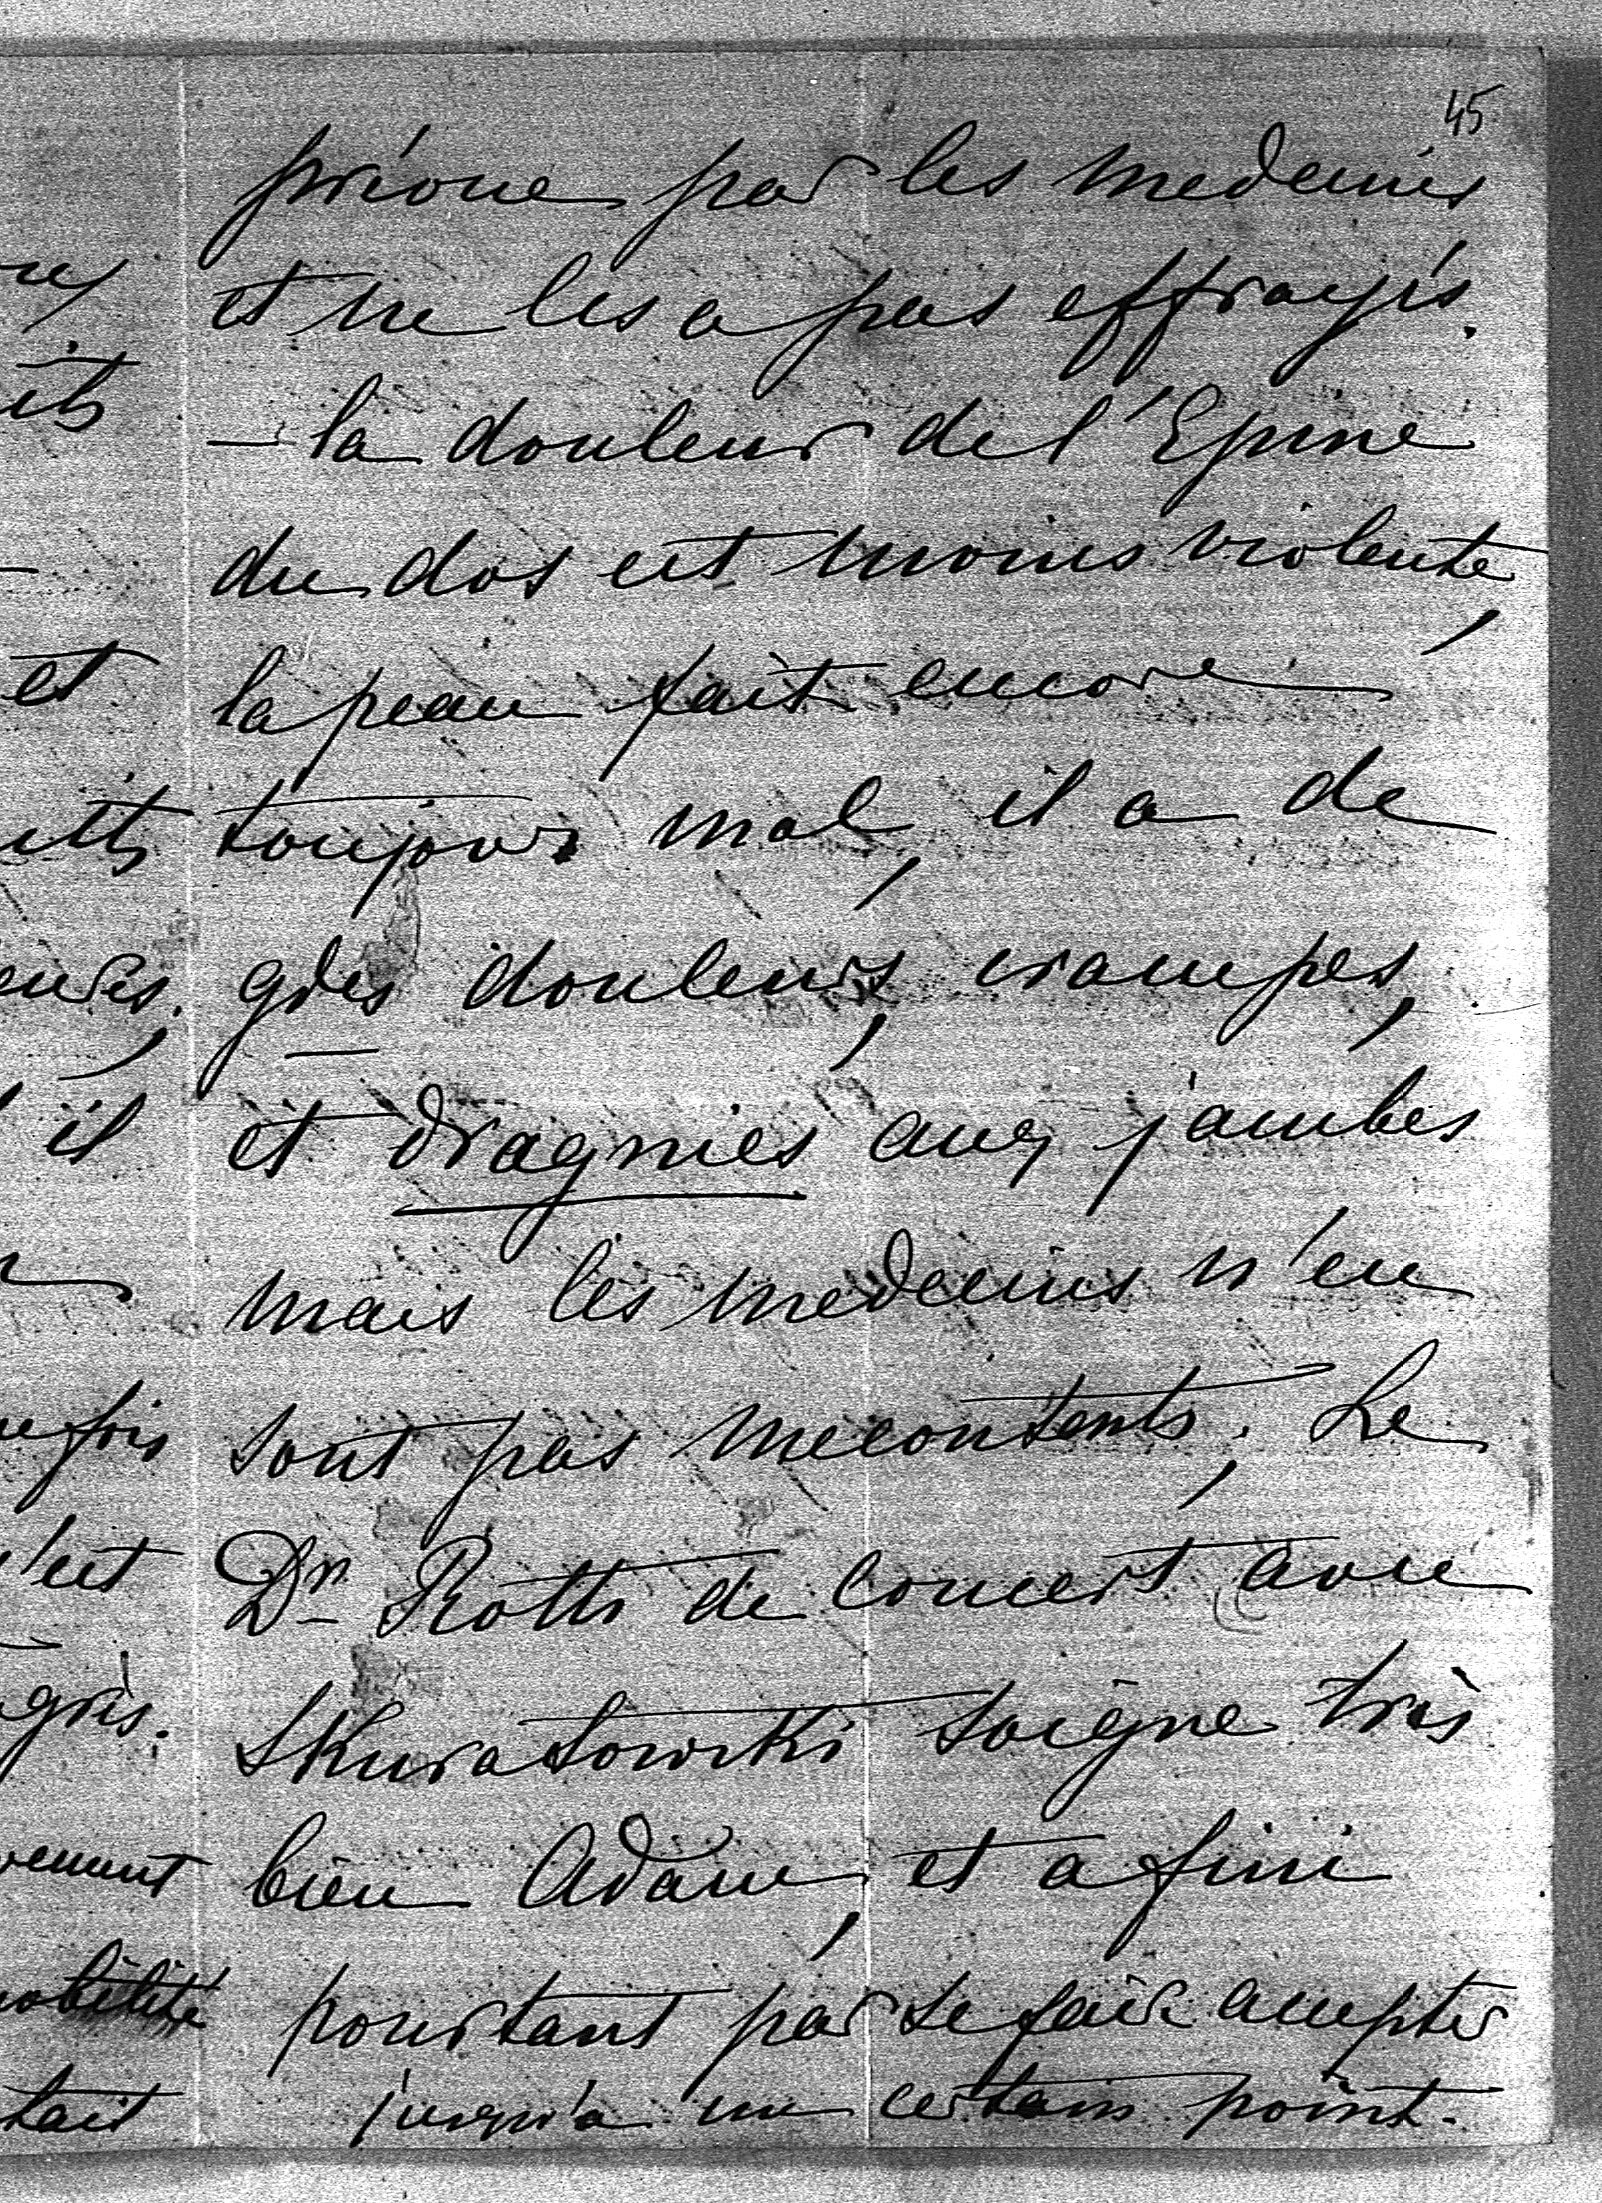 45
prévue par les medecins
et ne les a pas effrayés.
— la douleur de l'Epine
du dos est moins violente,
la peau fait encore
toujours mal, il a de
gdes douleurs, crampes,
et dragnies aux jambes
mais les medecins n'en
sont pas mecontents. Le
Dr Rotts de concert avec
Skuratowski soigne très
bien Adam, et a fini
pourtant par se faire accepter
jusqu'à un certain point.
its
et
il
est
grès.
vement
tait